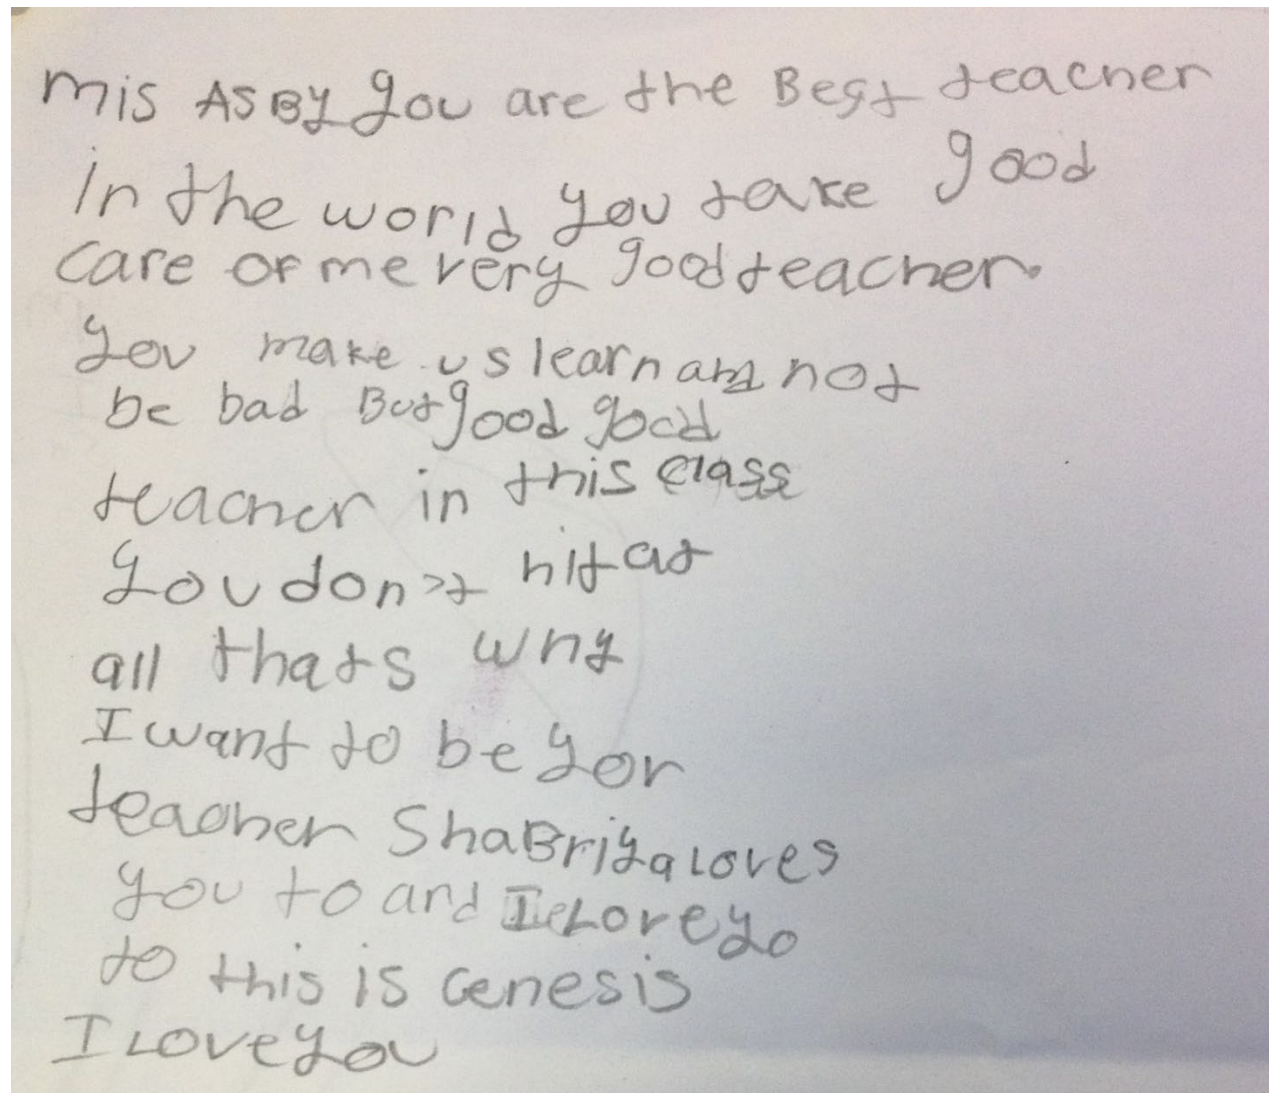 mis ASBY you are the Best teacher
in the world you take good
care of me very good teacher.
you make us learn and not
be bad But good good
teacher in this class
you don't hit at
all thats why
I want to be yor
teacher ShaBriya Loves
you to and I Love yo
to this is Genesis
I Love you